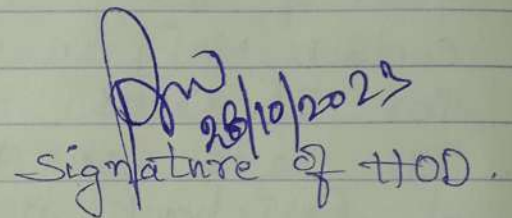 28/10/2023
Signature of HOD.